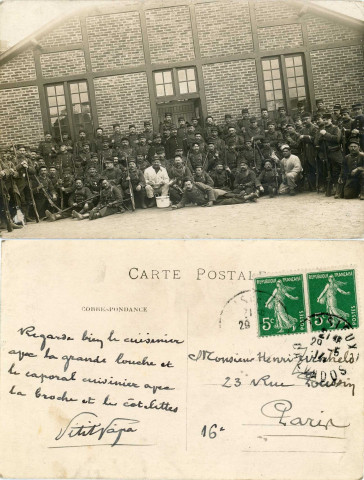 CARTE POSTALE
CORRESPONDANCE
REPUBLIQUE FRANÇAISE
REPUBLIQUE FRANÇAISE
5c POSTES
5c POSTES
Regarde bien le cuisinier
avec la grande louche et
le caporal cuisinier avec
la broche et les côtelettes
Monsieur Henri
23 Rue
Paris
16e